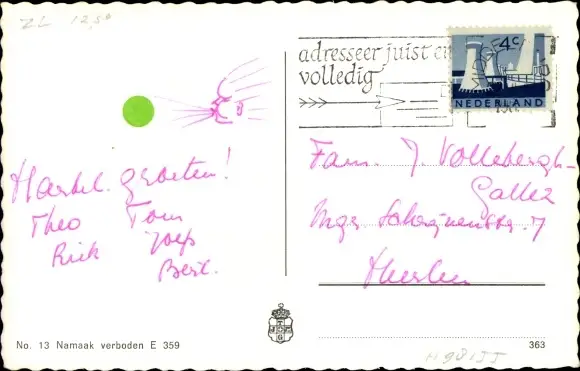 ZL 12,50
adresseer juist en
volledig
4c
NEDERLAND
Hartel. groeten!
Theo Tom
Rick Joep
Bert.
Fam. J. Vollebergh-
Galler
Heerlen
No. 13 Namaak verboden E 359
363